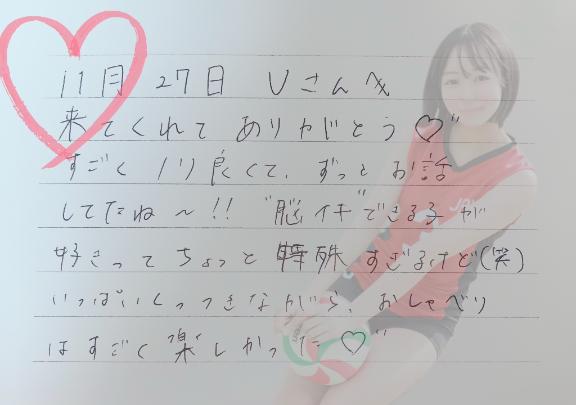 11月 27日 Uさんへ
来てくれて ありがとう♡"
すごく ノリ良くて、ずっと お話
してたね〜!! "脳イキ"できる子が
好きって ちょっと 特殊 すぎるけど(笑)
いっぱいくっつきながら、おしゃべり
は すごく 楽しかった♡"